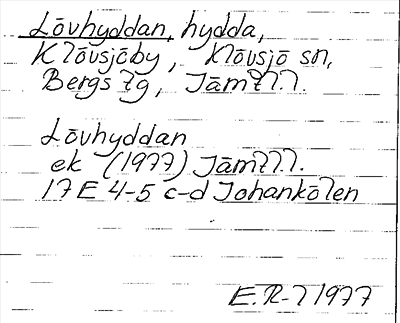 Lövhyddan, hydda,
Klövsjöby, Klövsjö sn,
Bergs tg, Jämtl.l.
Lövhyddan
ek (1977) Jämtl.l.
17E 4-5 c-d Johankölen
E.R-l 1977